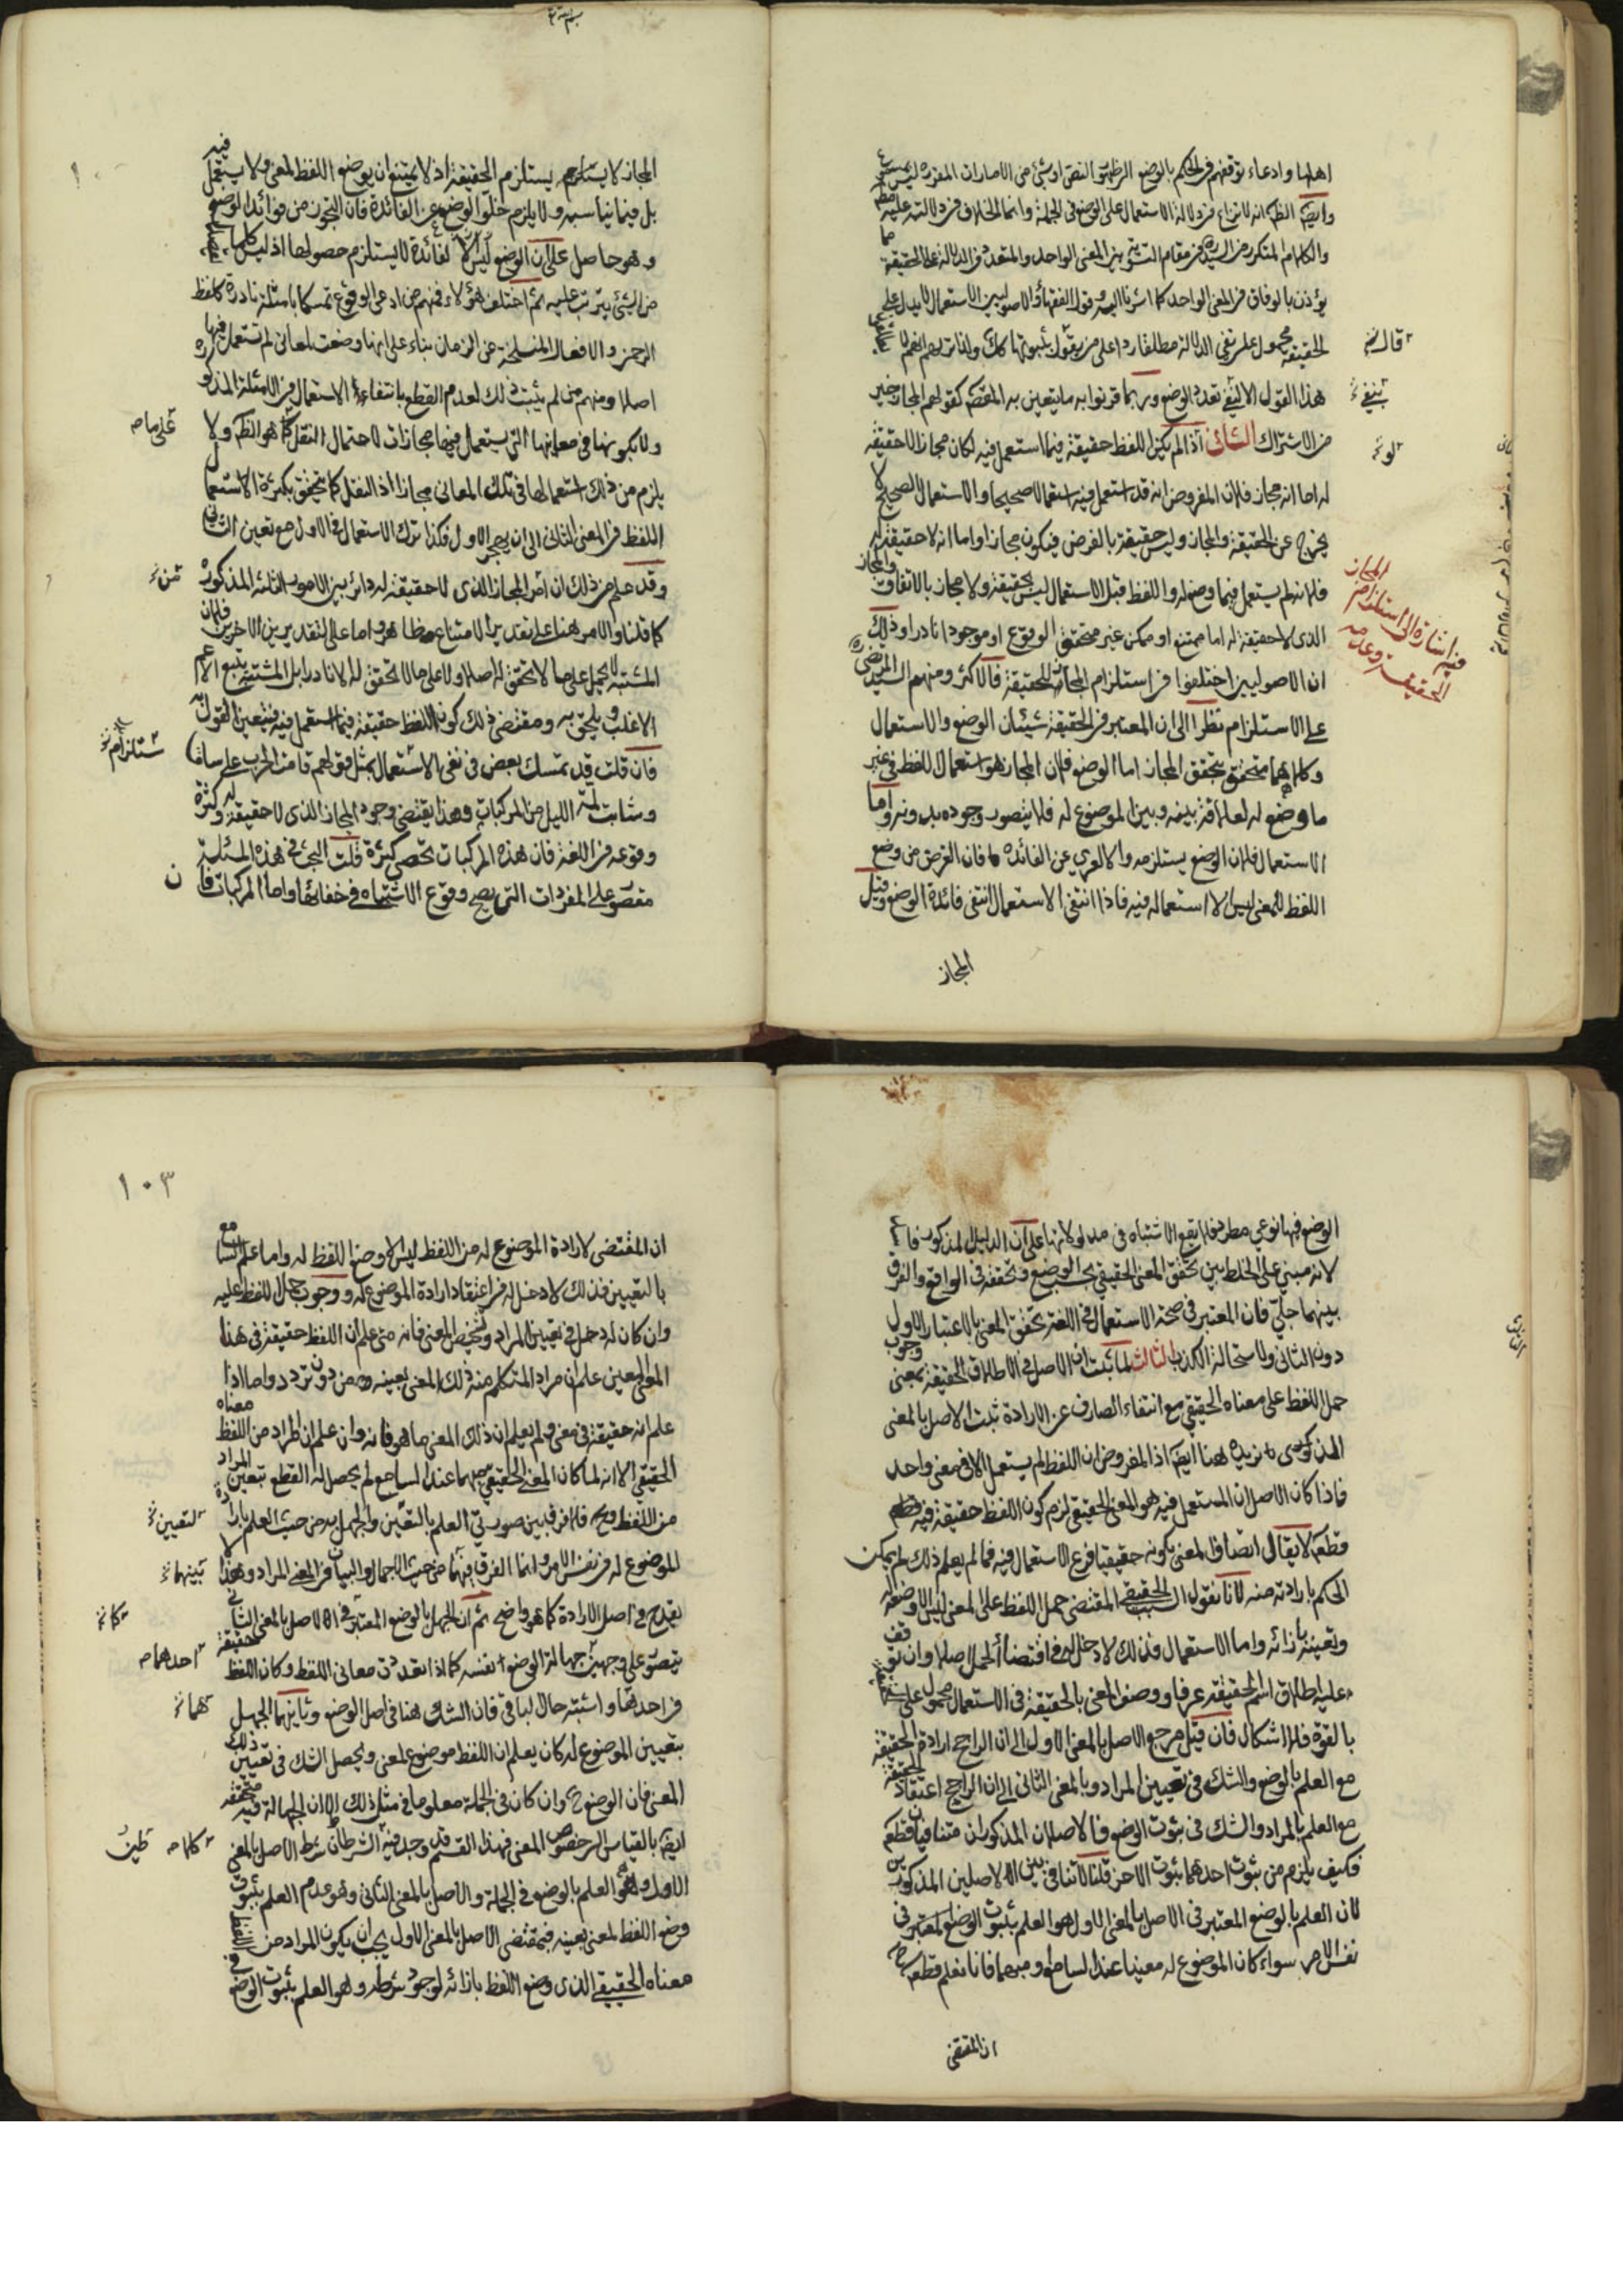 اهلها وادعاء توقفهم في الحكم بالوضع الظهور النص او شئ من الامارات المقررة ليس
وايضا الظ انه لا نزاع في دلالة الاستعمال على الوضع في الجملة وانما الخلاف في دلالته عليه
والكلام المتكرر من السيد في مقام التسوية بين المعنى الواحد والمتعدد في الدلالة على الحقيقة
يؤذن بالوفاق في المعنى الواحد كما اشرنا اليه وقول الفقهاء والاصوليين الاستعمال لا يدل على
الحقيقة محمول على نفي الدلالة مطلقا ردا على من يقول بثبوتها كك
هذا القول الا لنفي تعدد الوضع وربما قرنوا به ما يتعين به المقصد كقولهم المجاز خير
من الاشتراك الثانى اذا لم يكن اللفظ حقيقة فيما استعمل فيه لكان مجازا لا حقيقة
له اما انه مجاز فلان المفروض انه قد استعمل فيه استعمالا صحيحا والاستعمال الصحيح لا
يخرج عن الحقيقة والمجاز وليس حقيقة بالفرض فيكون مجازا واما انه لا حقيقة له
فلانه لم يستعمل فيما وضع له واللفظ قبل الاستعمال ليس بحقيقة ولا مجاز بالاتفاق والمجاز
الذى لا حقيقة له اما ممتنع او ممكن غير متحقق الوقوع او موجود نادرا وذلك
ان الاصوليين اختلفوا في استلزام المجاز للحقيقة فالاكثر ومنهم السيد المرتضى
على الاستلزام نظرا الى ان المعتبر في الحقيقة شيئان الوضع والاستعمال
وكلاهما متحقق بتحقق المجاز اما الوضع فلان المجاز هو استعمال اللفظ في غير
ما وضع له لعلاقة بينه وبين الموضوع له فلا يتصور وجوده بدونه واما
الاستعمال فلان الوضع يستلزمه والا لعري عن الفائدة فان الغرض من وضع
اللفظ للمعنى ليس الا استعماله فيه فاذا انتفى الاستعمال انتفى فائدة الوضع وقيل
المجاز
قال
ينبغي
لو
فيه اشارة الى استلزام المجاز
الحقيقة وعدمه
المجاز لا يستلزم الحقيقة اذ لا يمتنع ان يوضع اللفظ لمعنى ولا يستعمل فيه
بل فيما يناسبه ولا يلزم خلو الوضع عن الفائدة فان التجوز من فوائد الوضع
وهو حاصل على ان الوضع ليس الا لفائدة لا يستلزم حصولها اذ ليس كلما
من الشئ يترتب عليه ثم اختلف هؤلاء فمنهم من ادعى الوقوع تمسكا بامثلة نادرة كلفظ
الرحمن والافعال المنسلخة عن الزمان بناء على انها وضعت لمعانى لم تستعمل فيها
اصلا ومنهم من لم يثبت ذلك لعدم القطع بانتفاء الاستعمال في الامثلة المذكورة
ولا بكونها في معانيها التي يستعمل فيها مجازات لاحتمال النقل كما هو الظ ولا
يلزم من ذلك استعمالها في تلك المعانى مجازا اذ النقل كما يتحقق بكثرة الاستعمال
اللفظ في المعنى الثانى الى ان يهجر الاول فكذا ترك الاستعمال في الاول مع تعين الثانى
وقد علم من ذلك ان امر المجاز الذى لا حقيقة له دائر بين الامور الثلثة المذكورة
كما قلنا والامر هنا على تقدير الامتناع ظاهر واما على التقديرين الاخرين فلان
المشتبه لا يحمل على ما لا تحقق له اصلا ولا على ما لا تحقق له الا نادرا بل المشتبه يتبع الاعم
الاغلب ويلحق به ومقتضى ذلك كون اللفظ حقيقة فيما استعمل فيه فتعين القول به
فان قلت قد تمسك بعض في نفى الاستلزام بمثل قولهم قامت الحرب على ساق
وشابت لمة الليل من المركبات وهذا يقتضى وجود المجاز الذى لا حقيقة له وكثرة
وقوعه في اللغة فان هذه المركبات تحصى كثرة قلت البحث في هذه المسئلة
مقصور على المفردات التى يصح وقوع الاشتباه في خفائها واما المركبات فان
على ما
من
ستلزام
الوضع فيها نوعي مطرد فلا يقع الاشتباه في مدلولاتها على ان الدليل المذكور
لانه مبني على الخلط بين تحقق المعنى الحقيقي بحسب الوضع وتحققه في الواقع والفرق
بينهما جلي فان المعتبر في صحة الاستعمال في اللغة تحقق المعنى بالاعتبار الاول
دون الثانى والاستحالة الكذب الثالث لما ثبت ان الاصل في الاطلاق الحقيقة بمعنى وجوب
حمل اللفظ على معناه الحقيقي مع انتفاء الصارف عن الارادة ثبت الاصل بالمعنى
المذكور هنا ايضا اذ المفروض ان اللفظ لم يستعمل الا في معنى واحد
فاذا كان الاصل ان المستعمل فيه هو المعنى الحقيقي لزم كون اللفظ حقيقة فيه
قطعا لا يقال اتصاف المعنى بكونه حقيقيا فرع الاستعمال فيه فما لم يعلم ذلك لم يمكن
الحكم بارادته منه لانا نقول السبب الحقيقي المقتضى حمل اللفظ على المعنى ليس الا وضعه له
وتعيينه بازائه واما الاستعمال فذلك لا دخل له في اقتضاء الحمل اصلا وان توقف
عليه اطلاق اسم الحقيقة عرفا ووصف المعنى بالحقيقة في الاستعمال محمول على
بالقوة فلا اشكال فان قيل مرجع الاصل بالمعنى الاول الى ان الراجح ارادة الحقيقة
مع العلم بالوضع والشك في تعيين المراد وبالمعنى الثانى الى ان الراجح اعتقاد الحقيقة
مع العلم بالمراد والشك في ثبوت الوضع فالاصلان المذكوران متنافيان قطعا
فكيف يلزم من ثبوت احدهما ثبوت الاخر قلنا لا تنافى بين الاصلين المذكورين
لان العلم بالوضع المعتبر في الاصل بالمعنى الاول هو العلم بثبوت الوضع المعتبر في
نفس الامر سواء كان الموضوع له معينا عند السامع او مبهما فانا نعلم قطعا
ان المقتضى
١٠٣
ان المقتضى لارادة الموضوع له من اللفظ ليس الا وضع اللفظ له واما علم السامع
بالتعيين فذلك لا دخل له في اعتقاد ارادة الموضوع له ووجوب حمل اللفظ عليه
وان كان له دخل في تعيين المراد وتشخيص المعنى فانه متى علم ان اللفظ حقيقة في هذا
المعنى المعين علم ان مراد المتكلم منه ذلك المعنى بعينه من دون تردد واما اذا
علم انه حقيقة في معنى ولم يعلم ان ذلك المعنى ما هو فانه وان علم ان المراد من اللفظ معناه
الحقيقي الا انه لما كان المعنى الحقيقي مبهما عند السامع لم يحصل له القطع بتعيين المراد
من اللفظ وح فلا فرق بين صورتي العلم بالتعين والجهل به من حيث العلم بارادة
الموضوع له في نفس الامر وانما الفرق بينهما من حيث الاجمال والبيان في المعنى المراد وهذا لا
يقدح في اصل الارادة كما هو واضح ثم ان الجهل بالوضع المعتبر في الاصل بالمعنى الثانى
يتصور على وجهين جهالة الوضع نفسه كما اذا تعددت معانى اللفظ وكان اللفظ حقيقة
في احدها واشتبه حال الباقى فان الشك هنا في اصل الوضع وثانيهما الجهل
بتعيين الموضوع له كان يعلم ان اللفظ موضوع لمعنى ويحصل الشك في تعيين ذلك
المعنى فان الوضع ح وان كان في الجملة معلوما في مثل ذلك الا ان الجهالة فيه متحققة
ايضا بالقياس الى خصوص المعنى فهذا القسم قد وجد فيه الشرطان شرط الاصل بالمعنى
الاول وهو العلم بالوضع في الجملة والاصل بالمعنى الثانى وهو عدم العلم بثبوت
وضع اللفظ لمعنى بعينه فبمقتضى الاصل بالمعنى الاول يجب ان يكون المراد من اللفظ
معناه الحقيقي الذى وضع اللفظ بازائه لوجود شرطه وهو العلم بثبوت الوضع في
التعيين
بينهما
كان
احدهما
هما
كلا